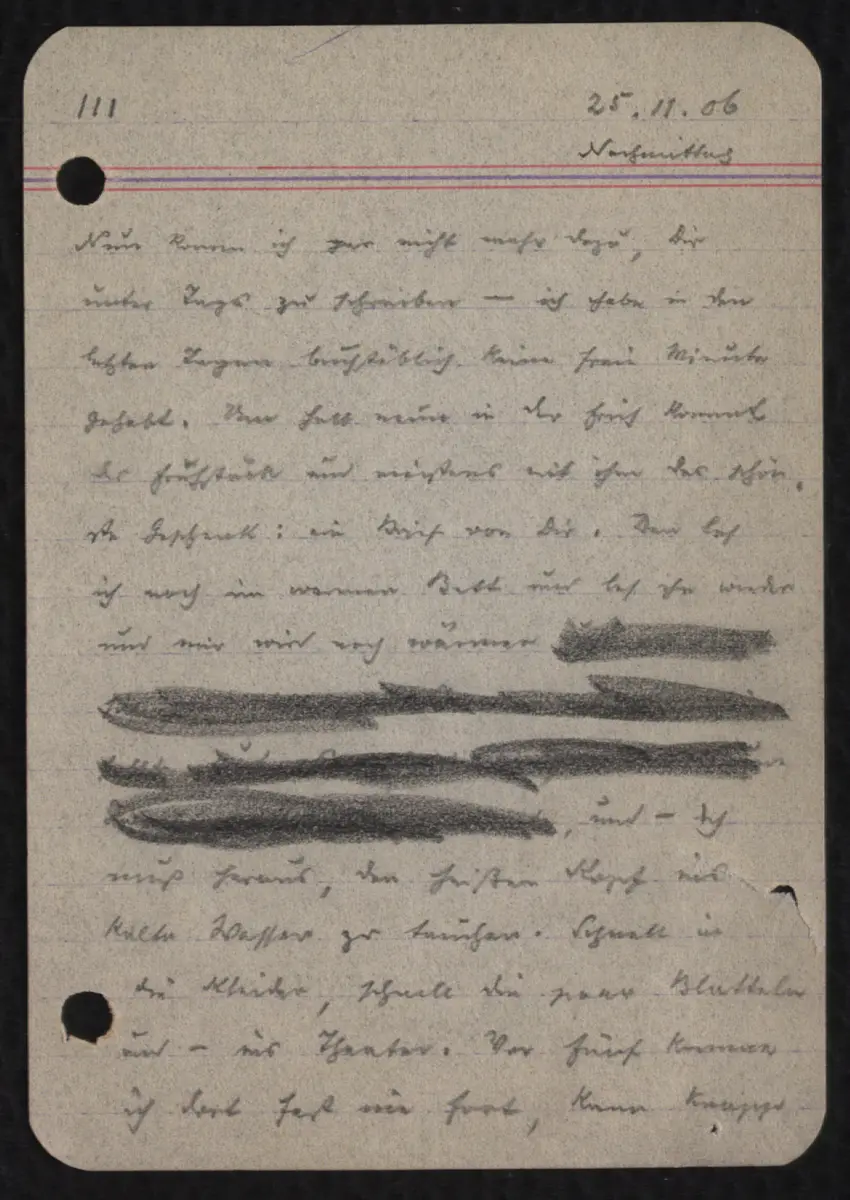 111
25.11.06
Nachmittag
Nun komm ich gar nicht mehr dazu, Dir
unter Tags zu schreiben — ich habe in den
letzten Tagen buchstäblich keine freie Minute
gehabt. Um halb neun in der Früh kommt
das Frühstück und meistens mit ihm das schön-
ste Geschenk: ein Brief von Dir. Den les
ich noch im warmen Bett und les ihn wieder
und mir wird noch wärmer
, und — ich
muß heraus, den heißen Kopf ins
kalte Wasser zu tauchen. Schnell in
die Kleider, schnell die paar Blatteln
und — ins Theater. Vor fünf komme
ich dort fast nie fort, kann knapp